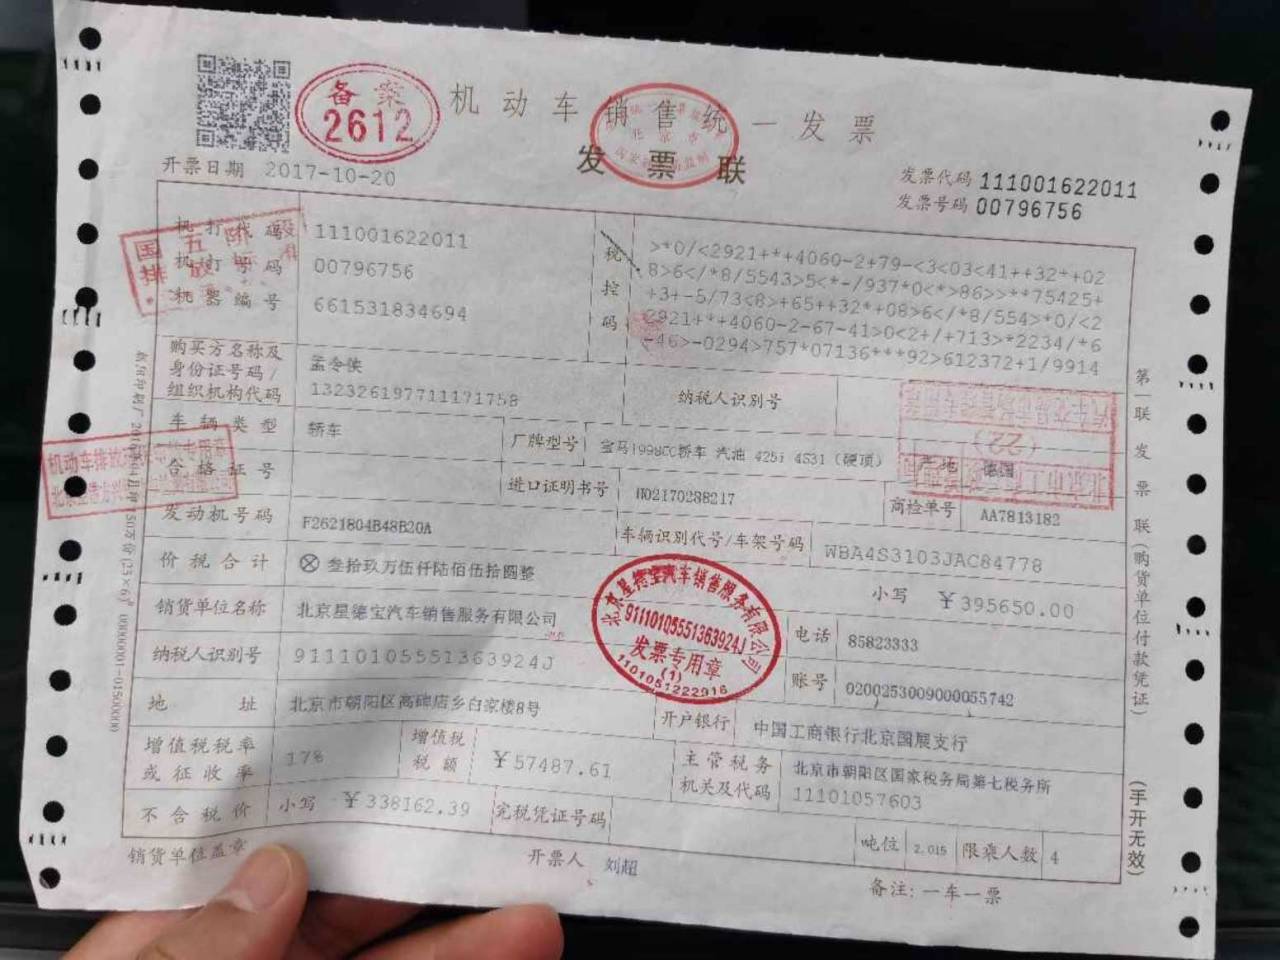 备案
2612
机动车销售统一发票
发票联
开票日期 2017-10-20
发票代码 111001622011
发票号码 00796756
机打代码 111001622011
机打号码 00796756
机器编号 661531834694
税控码
>*0/<2921+*+4060-2+79-<3<03<41++32*+02
8>6</*8/5543>5<*-/937*0<*>86>>**75425+
+3+-5/73<8>+65++32*+08>6</*8/554>*0/<2
2921+*+4060-2-67-41>0<2+/+713>*2234/*6
-46>-0294>757*07136***92>612372+1/9914
国五阶段
排放标准
购买方名称及身份证号码/组织机构代码
孟令侠
132326197711171758
纳税人识别号
车辆类型 轿车
厂牌型号 宝马1998CC轿车 汽油 425i 4S31（硬顶）
产地 德国
(22)
合格证号
进口证明书号 H02170288217
商检单号 AA7813182
发动机号码 F2621804B48B20A
车辆识别代号/车架号码 WBA4S3103JAC84778
价税合计 ⊗ 叁拾玖万伍仟陆佰伍拾圆整
小写 ￥395650.00
销货单位名称 北京星德宝汽车销售服务有限公司
电话 85823333
纳税人识别号 91110105551363924J
账号 0200253009000055742
北京星德宝汽车销售服务有限公司
91110105551363924J
发票专用章
(1)
1101051222916
地址 北京市朝阳区高碑店乡白家楼8号
开户银行 中国工商银行北京国展支行
增值税税率或征收率 17%
增值税税额 ￥57487.61
主管税务机关及代码 北京市朝阳区国家税务局第七税务所
11101057603
不含税价 小写 ￥338162.39
完税凭证号码
吨位 2.015
限乘人数 4
销货单位盖章
开票人 刘超
备注:一车一票
第一联 发票联(购货单位付款凭证)
(手开无效)